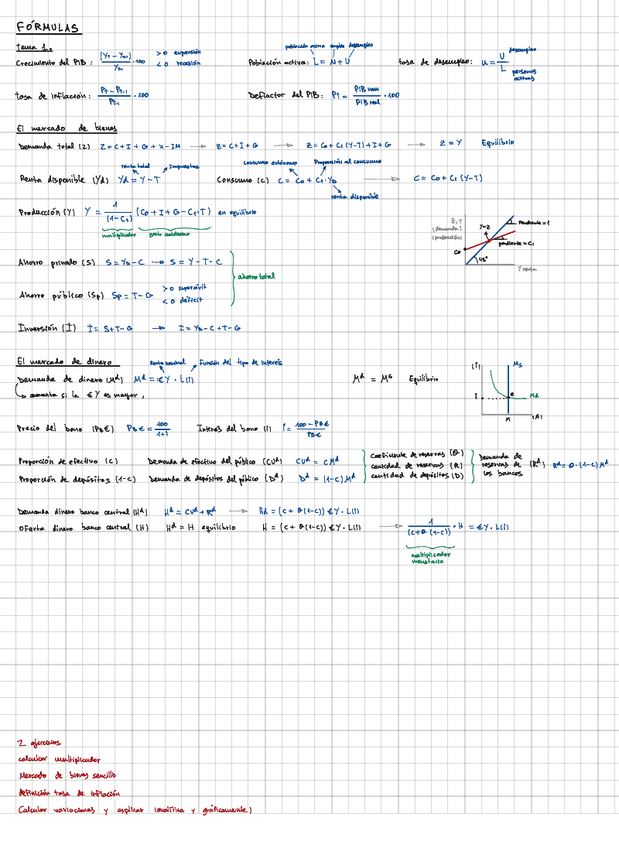 FÓRMULAS
tema 1.
Crecimiento del PIB: (Yt - Yt-1) / Yt-1 · 100 >0 expansión <0 recesión
población activa empleo desempleo
Población activa: L = N + U
tasa de desempleo: u = U / L desempleo personas activas
tasa de inflación: Pt - Pt-1 / Pt-1 · 100
Deflactor del PIB: Pt = PIB nom / PIB real · 100
El mercado de bienes
Demanda total (Z) Z = C + I + G + X - IM → Z = C + I + G → Z = C0 + C1 (Y-T) + I + G → Z = Y Equilibrio
renta total Impuestos
Renta disponible (Yd) Yd = Y - T
Consumo autónomo Proporción al consumo
Consumo (C) C = C0 + C1 · YD → C = C0 + C1 (Y-T)
renta disponible
Producción (Y) Y = 1 / (1-C1) (C0 + I + G - C1·T) en equilibrio
multiplicador gasto autónomo
Z, Y
(demanda)
(producción)
Y=Z
Pendiente = 1
pendiente = C1
C0
45°
Y renta
Ahorro privado (S) S = YD - C → S = Y - T - C
ahorro total
Ahorro público (Sp) Sp = T - G >0 superávit <0 déficit
Inversión (I) I = S + T - G → I = YD - C + T - G
El mercado de dinero
Renta nominal Función del tipo de interés
Demanda de dinero (Md) Md = €Y · L(i)
aumenta si la €Y es mayor
Md = Ms Equilibrio
(i)
Ms
i
e
Md
M
(M)
Precio del bono (PB€) PB€ = 100 / 1+i
Interés del bono (i) i = 100 - PB€ / PB€
Proporción de efectivo (C) Demanda de efectivo del público (CUd) CUd = CMd
Proporción de depósitos (1-C) Demanda de depósitos del público (Dd) Dd = (1-C) Md
Coeficiente de reservas (θ)
cantidad de reservas (R)
cantidad de depósitos (D)
Demanda de reservas de los bancos (Rd) Rd = θ · (1-C) Md
Demanda dinero banco central (Hd) Hd = CUd + Rd → Hd = (C + θ(1-C)) €Y · L(i)
Oferta dinero banco central (H) Hd = H equilibrio H = (C + θ(1-C)) €Y · L(i) → 1 / (C+θ(1-C)) · H = €Y · L(i)
multiplicador monetario
2 ejercicios
calcular multiplicador
Mercado de bienes sencillo
definición tasa de inflación
Calcular variaciones y explicar (analítica y gráficamente)